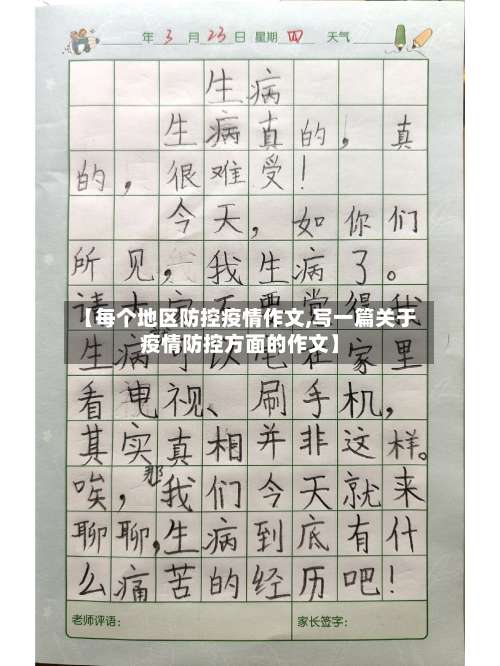 年 3 月 23 日 星期 四 天气
生病
生病真的，真
的，很难受！
今天，如你们
所见，我生病了。
请大家不要觉得我
【每个地区防控疫情作文,写一篇关于
疫情防控方面的作文】
生病可以宅在家里
看电视、刷手机，
其实真相并非这样。
唉，那我们今天就来
聊聊，生病到底有什
么痛苦的经历吧！
老师评语： 家长签字：